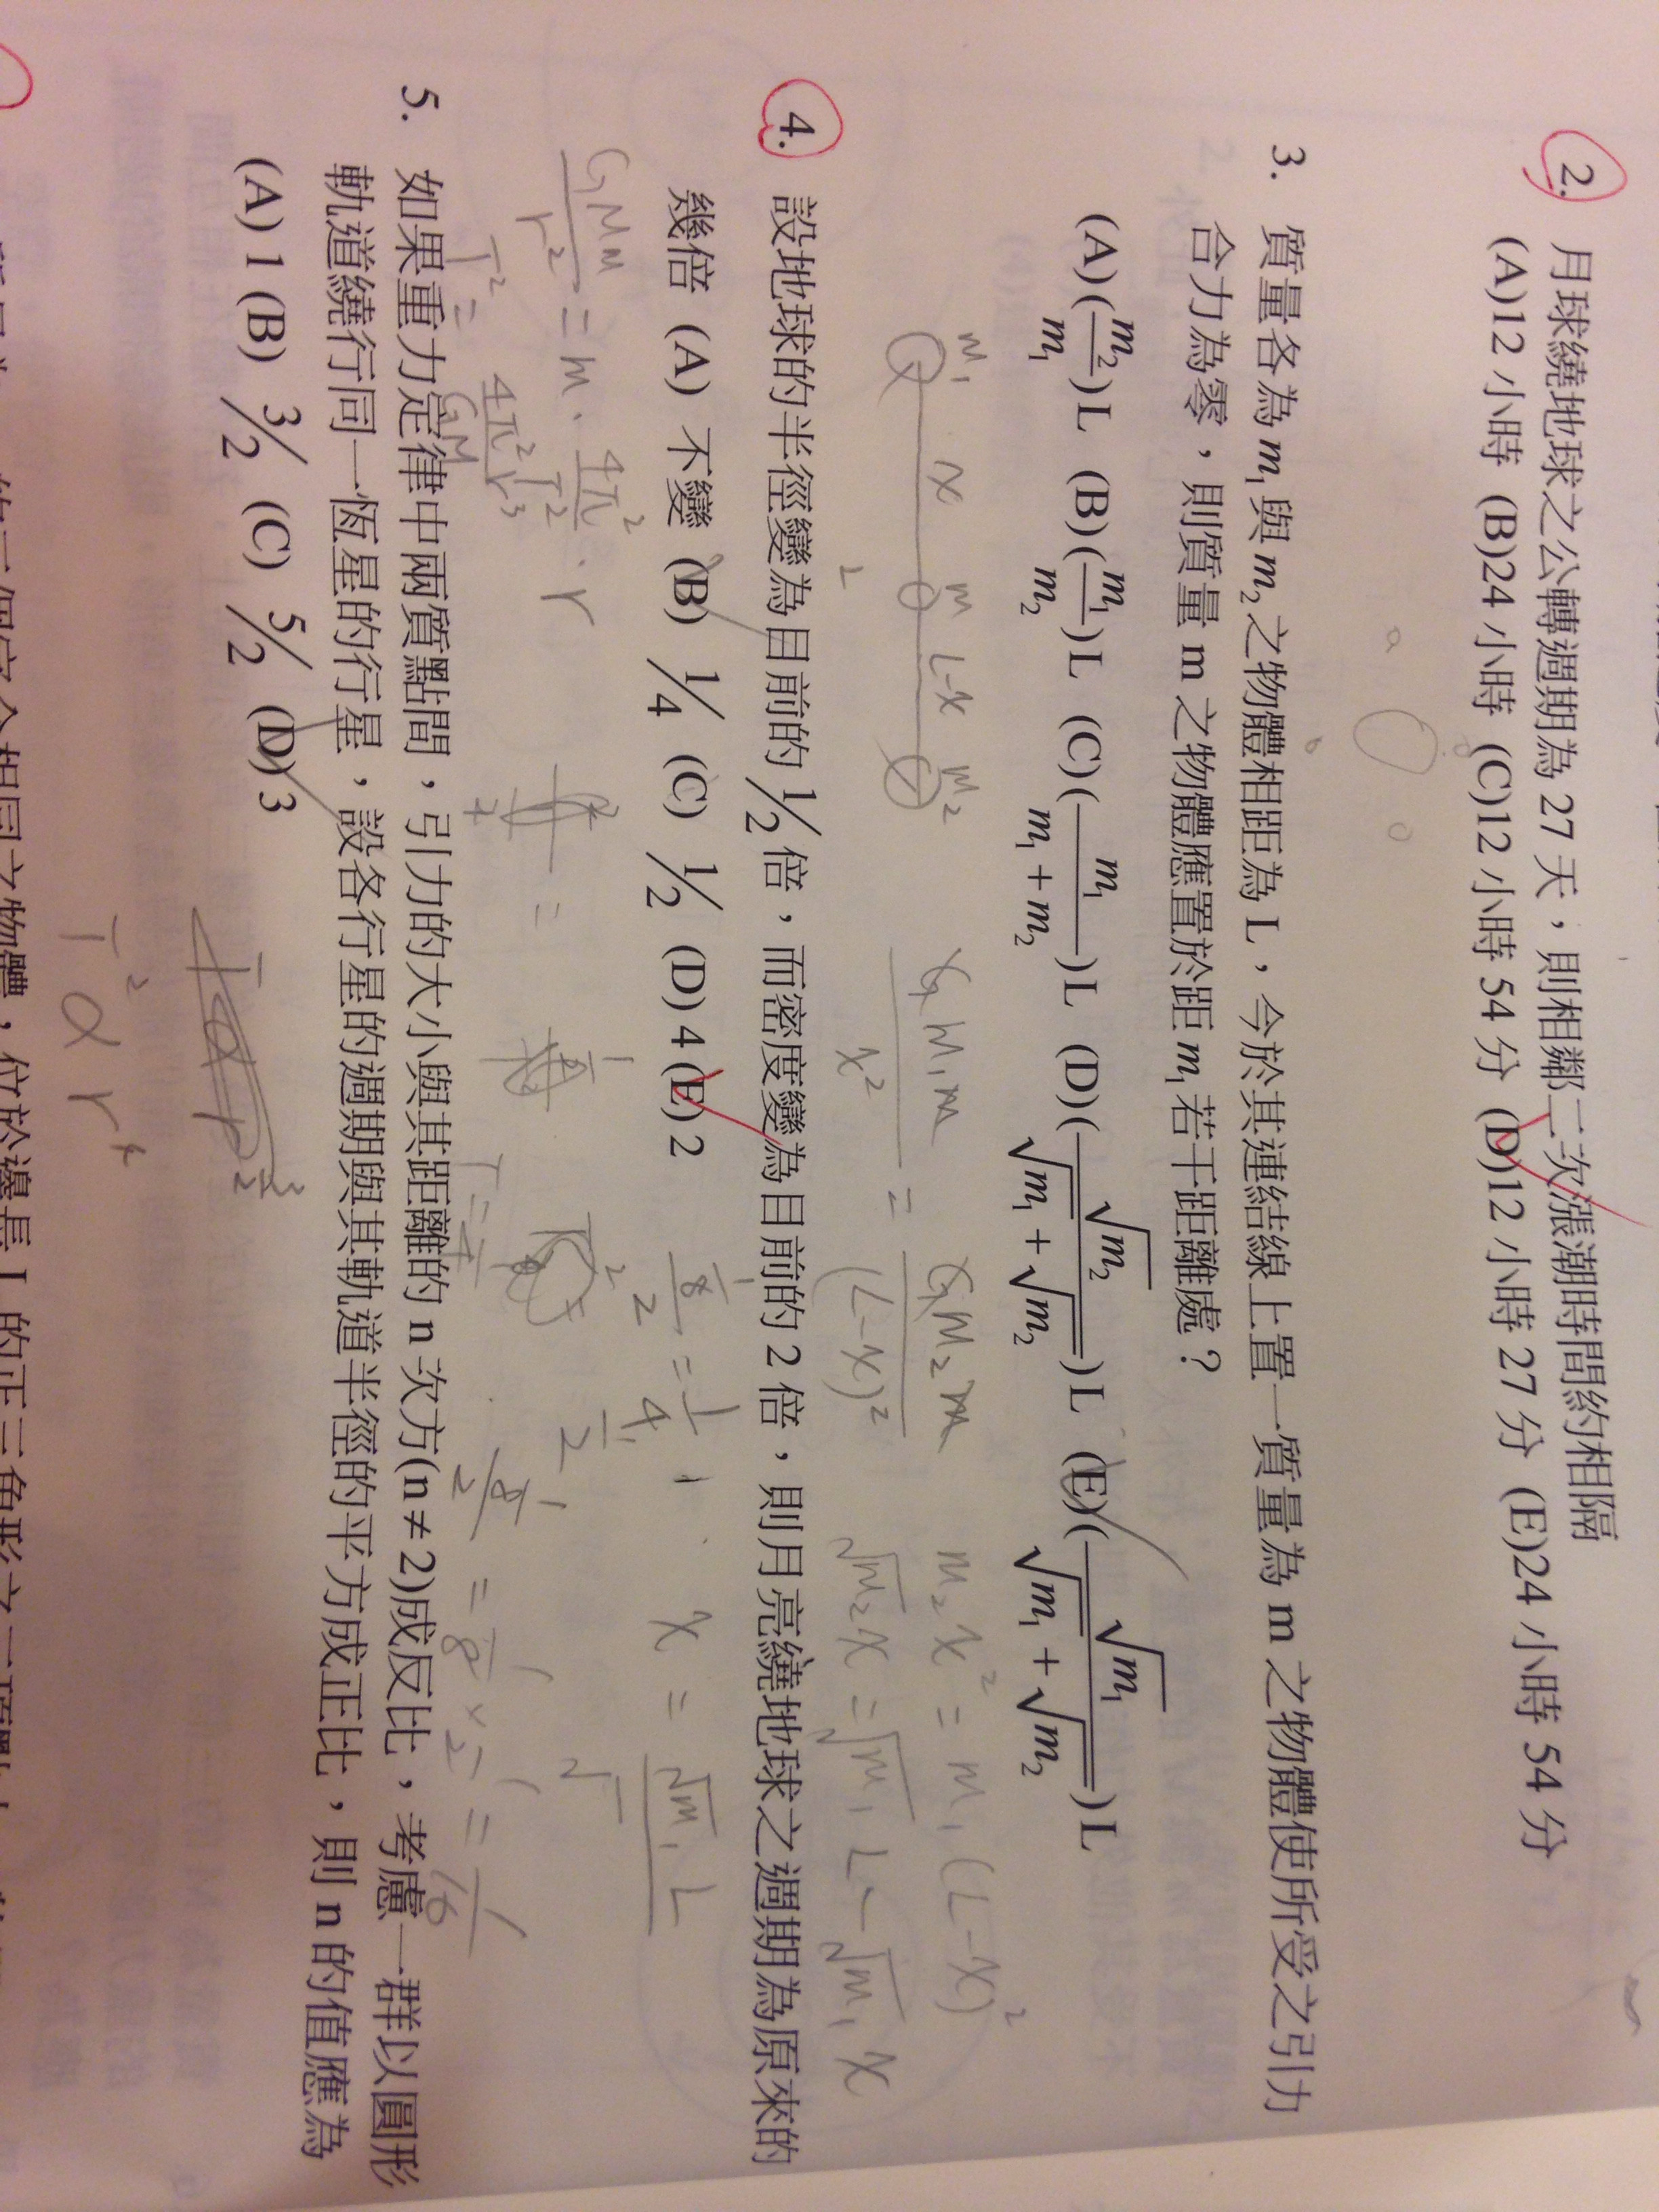 2. 月球繞地球之公轉週期為 27 天，則相鄰二次漲潮時間約相隔
(A)12 小時 (B)24 小時 (C)12 小時 54 分 (D)12 小時 27 分 (E)24 小時 54 分
3. 質量各為 m₁與 m₂之物體相距為 L，今於其連結線上置一質量為 m 之物體使所受之引力
合力為零，則質量 m 之物體應置於距 m₁若干距離處？
(A)(m₂/m₁)L (B)(m₁/m₂)L (C)(m₁/(m₁+m₂))L (D)(√m₂/(√m₁+√m₂))L (E)(√m₁/(√m₁+√m₂))L
m₁ x m L-x m₂
Gm₁m/x² = Gm₂m/(L-x)²
m₂x² = m₁(L-x)²
√m₂x = √m₁L - √m₁x
x = √m₁L/√
4. 設地球的半徑變為目前的 1/2 倍，而密度變為目前的 2 倍，則月亮繞地球之週期為原來的
幾倍 (A) 不變 (B) 1/4 (C) 1/2 (D) 4 (E) 2
GMm/r² = m · 4π²/T² · r
T² = 4π²r³/GM
1/8 · 2 = 1/4
1/8 × 1/2 = 1/16
5. 如果重力定律中兩質點間，引力的大小與其距離的 n 次方(n ≠ 2)成反比，考慮一群以圓形
軌道繞行同一恆星的行星，設各行星的週期與其軌道半徑的平方成正比，則 n 的值應為
(A) 1 (B) 3/2 (C) 5/2 (D) 3
T² α r⁴